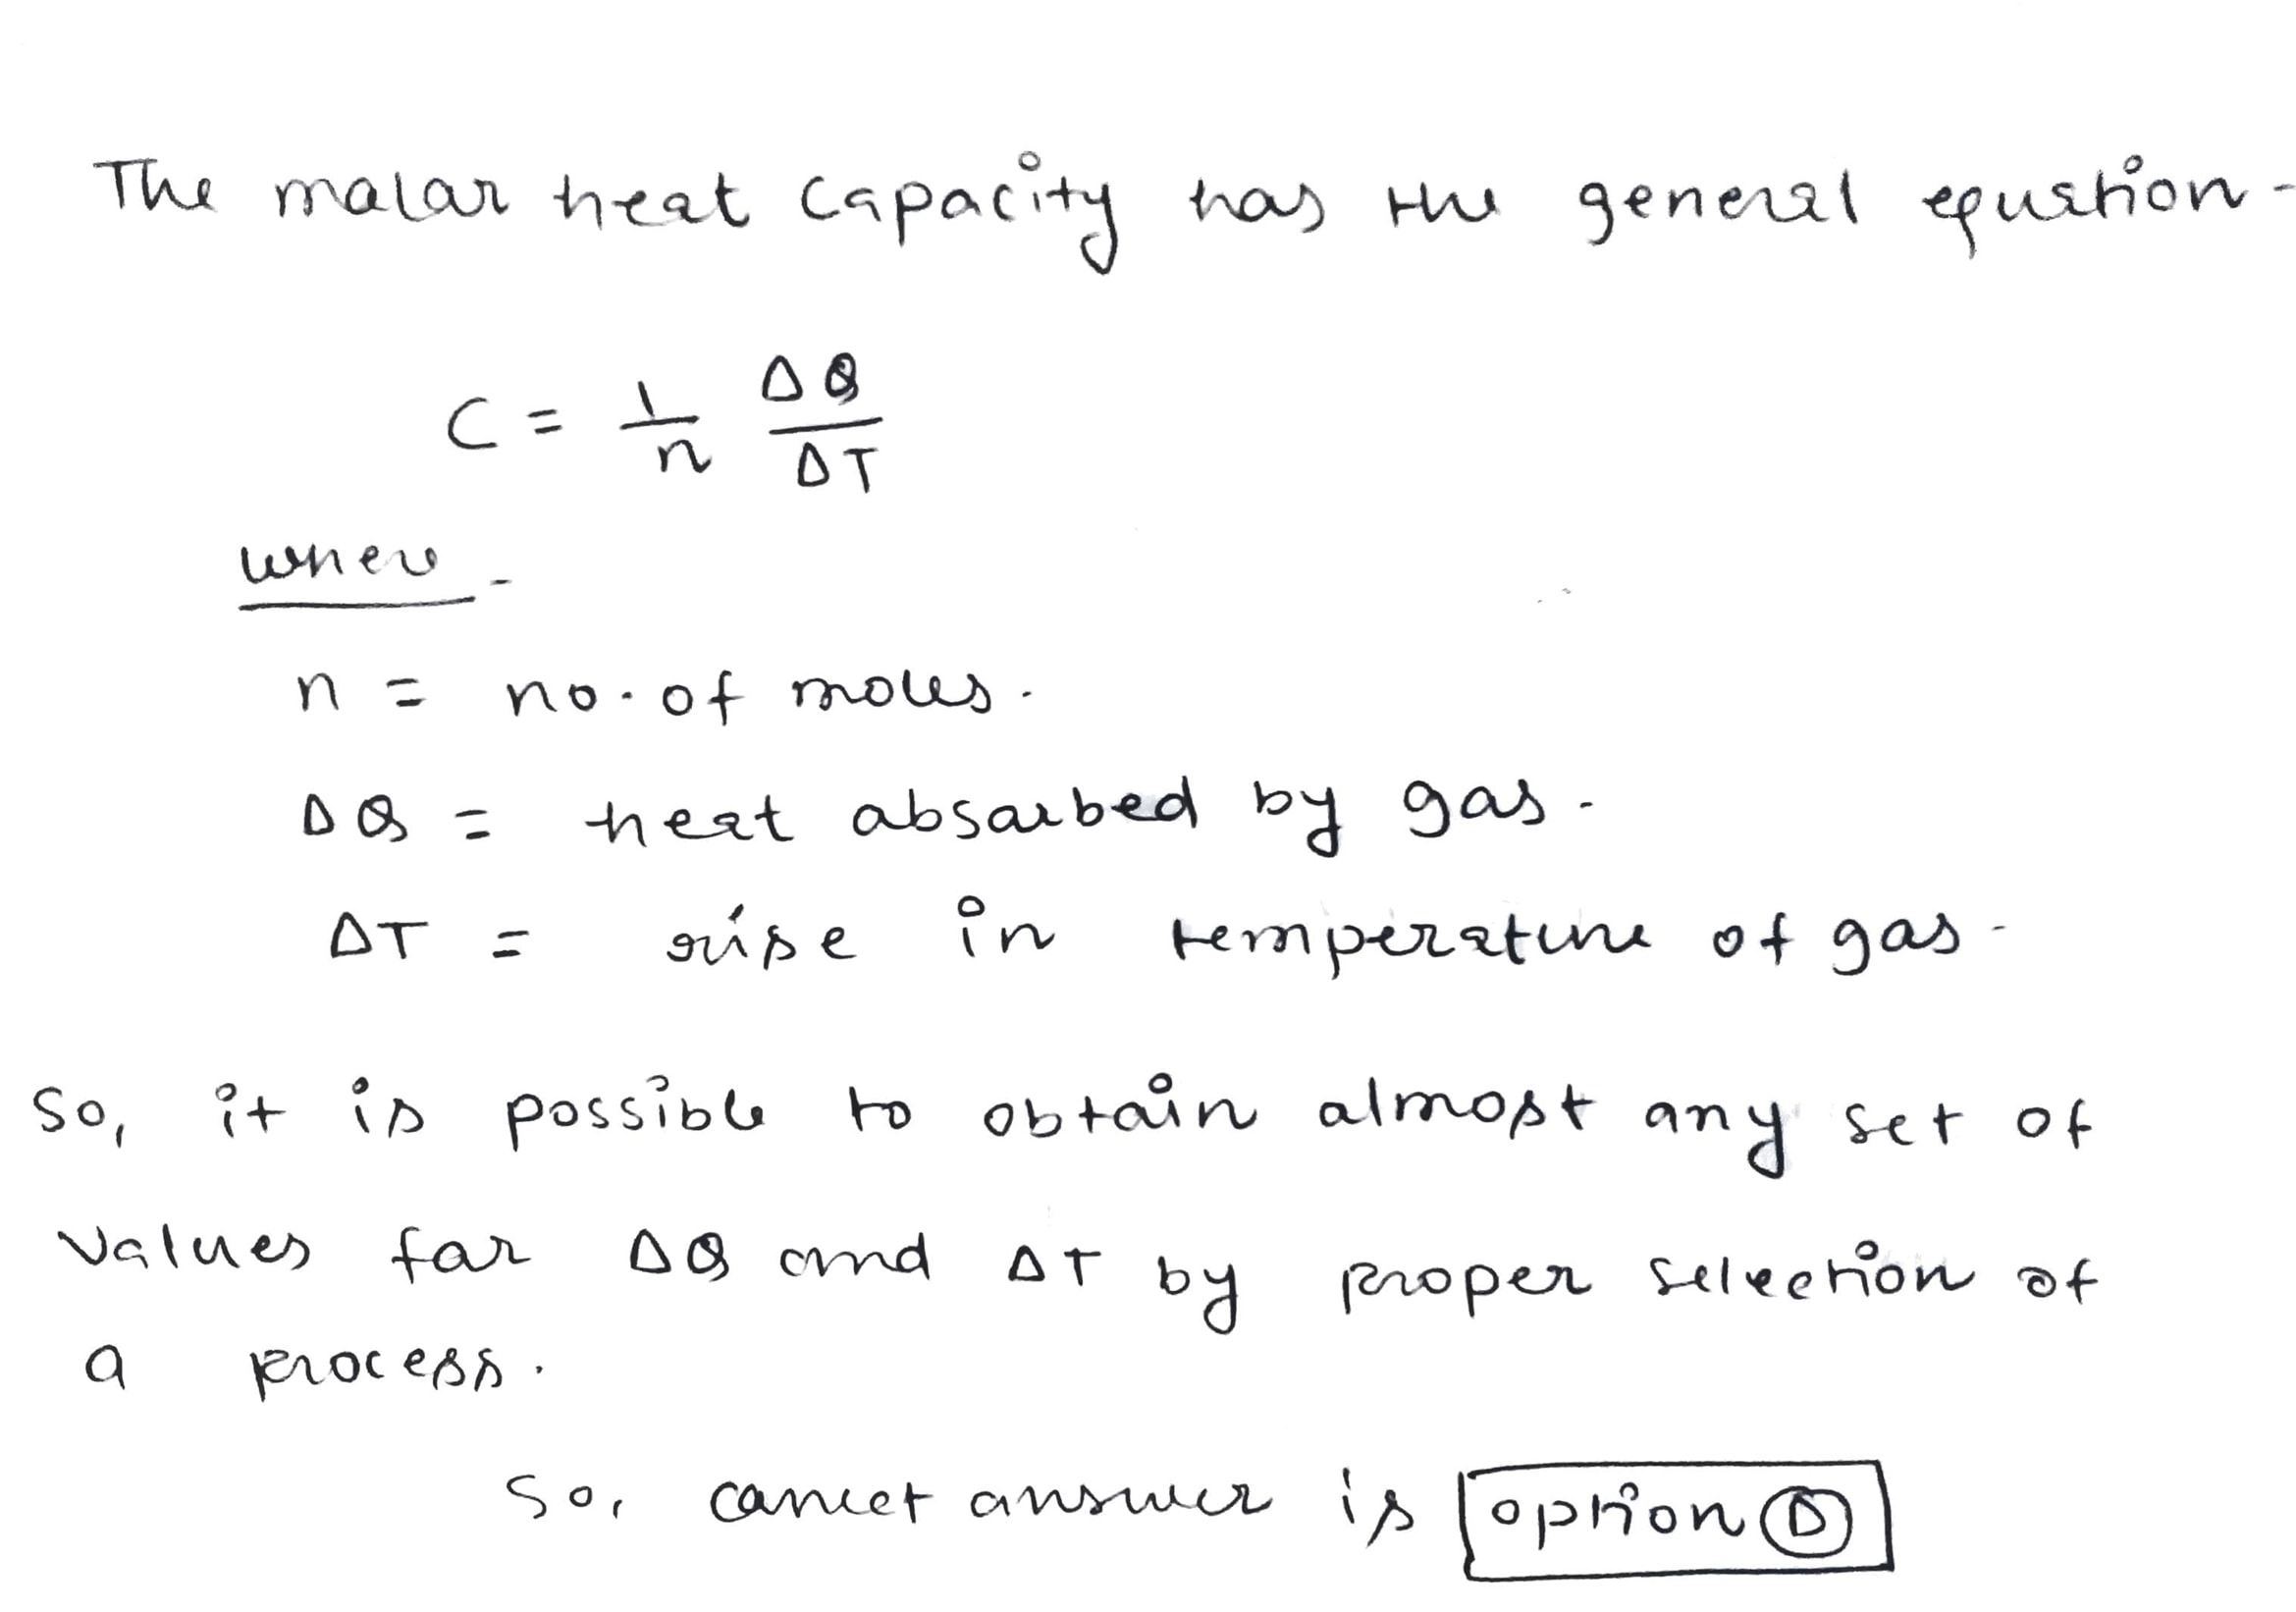 The molar heat capacity has the general equation-
C = 1/n ΔQ/ΔT
where -
n = no. of moles.
ΔQ = heat absorbed by gas.
ΔT = rise in temperature of gas.
So, it is possible to obtain almost any set of
values for ΔQ and ΔT by proper selection of
a process.
So, correct answer is option D